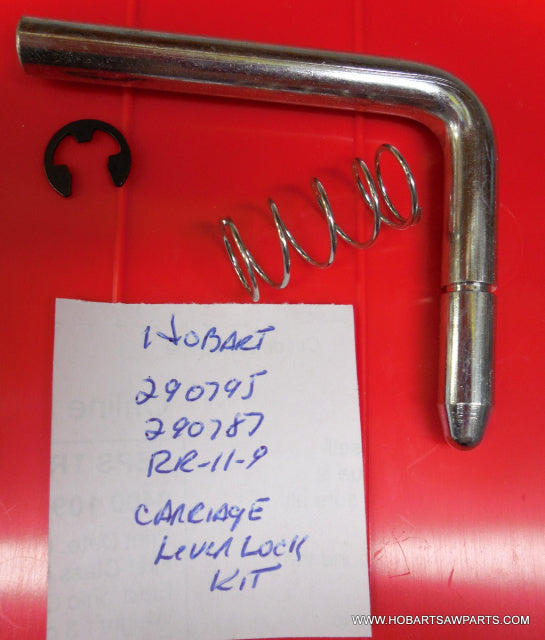 HOBART
290795
290787
RR-11-9
CARRIAGE
LEVER LOCK
KIT
WWW.HOBARTSAWPARTS.COM